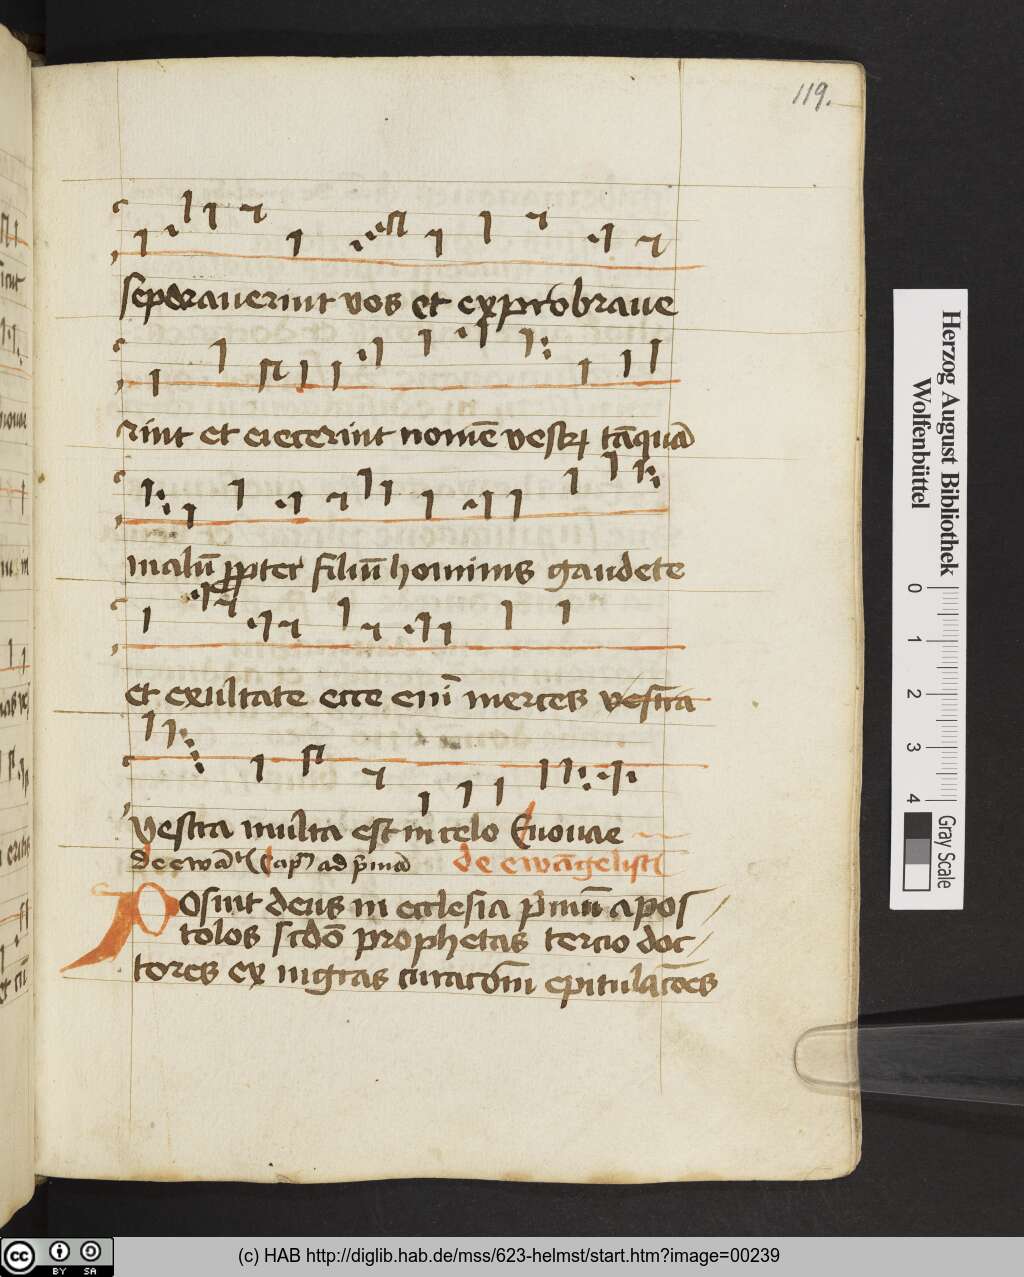 119.
seperauerint vos et exprobraue
rint et eiecerint nomē vestrꝫ tāquā
malū ꝓpter filiū hominis gaudete
et exultate ecce eni̅ merces vestra
Vestra multa est in celo Euouae
de ewāᵗ Cap̄ ad p̄mā de ewāgelisti
Posuit deus in ecclesia p̄mū apos
tolos scdō prophetas tercio doc
tores ex
Herzog August Bibliothek
Wolfenbüttel
0 1 2 3 4
Gray Scale
cc BY SA
(c) HAB http://diglib.hab.de/mss/623-helmst/start.htm?image=00239